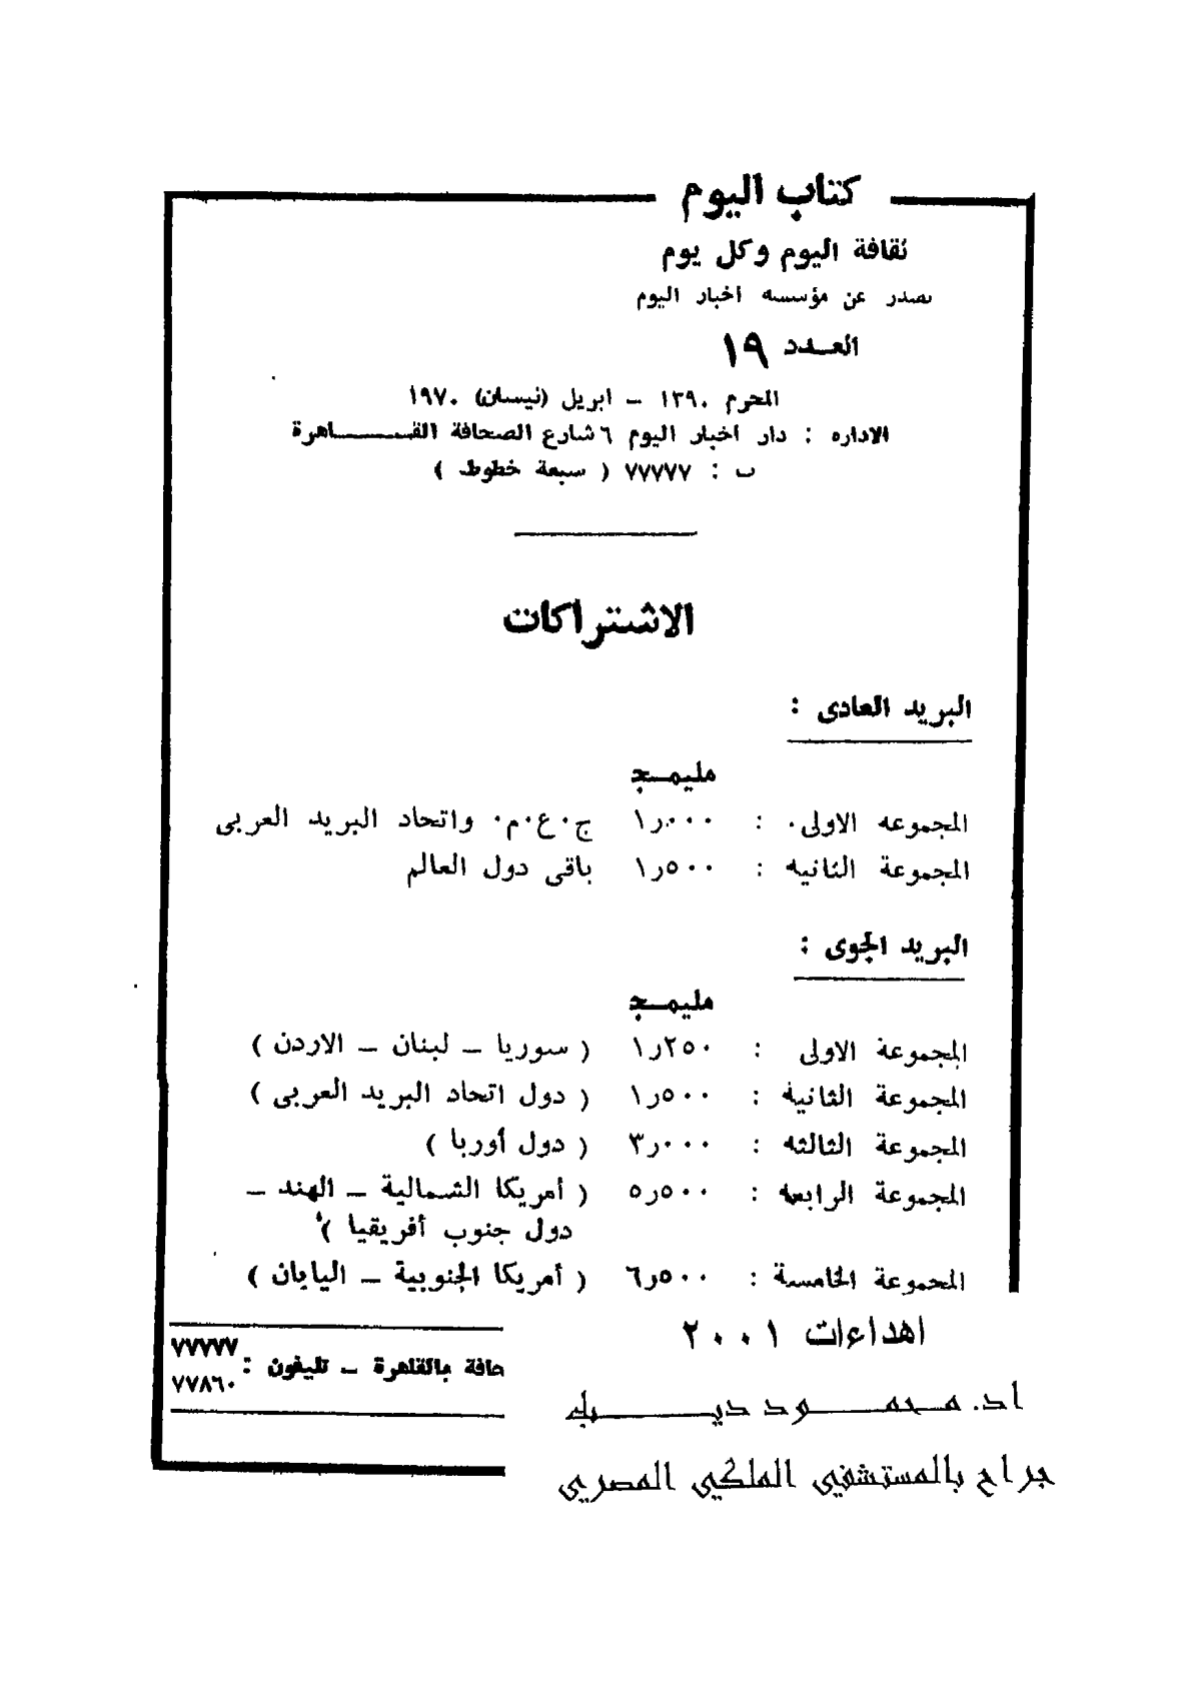 كتاب اليوم
ثقافة اليوم وكل يوم
يصدر عن مؤسسه اخبار اليوم
العدد ١٩
المحرم ١٣٩٠ – ابريل (نيسان) ١٩٧٠
الاداره : دار اخبار اليوم ٦ شارع الصحافة القاهرة
ت : ٧٧٧٧٧ ( سبعة خطوط )
الاشتراكات
البريد العادى :
مليمـج
المجموعه الاولى . : ١٫٠٠٠ ج٠ع٠م٠ واتحاد البريد العربى
المجموعة الثانيه : ١٫٥٠٠ باقى دول العالم
البريد الجوى :
مليمـج
المجموعة الاولى : ١٫٢٥٠ ( سوريا – لبنان – الاردن )
المجموعة الثانية : ١٫٥٠٠ ( دول اتحاد البريد العربى )
المجموعة الثالثه : ٣٫٠٠٠ ( دول أوربا )
المجموعة الرابعه : ٥٫٥٠٠ ( أمريكا الشمالية – الهند –
دول جنوب أفريقيا )
المجموعة الخامسة : ٦٫٥٠٠ ( أمريكا الجنوبية – اليابان )
اهداءات ٢٠٠١
اد. محمود دياب
جراح بالمستشفي الملكي المصري
حافة بالقاهرة – تليفون : ٧٧٧٧٧
٧٧٨٦٠